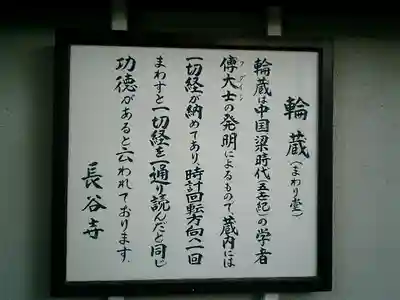 輪蔵(まわり堂)
輪蔵は中国梁時代(五世紀)の学者
傅大士の発明によるもので、蔵内には
フダイシ
一切経が納めてあり、時計回転方向へ一回
まわすと一切経を一通り読んだと同じ
功徳があると云われております.
長谷寺